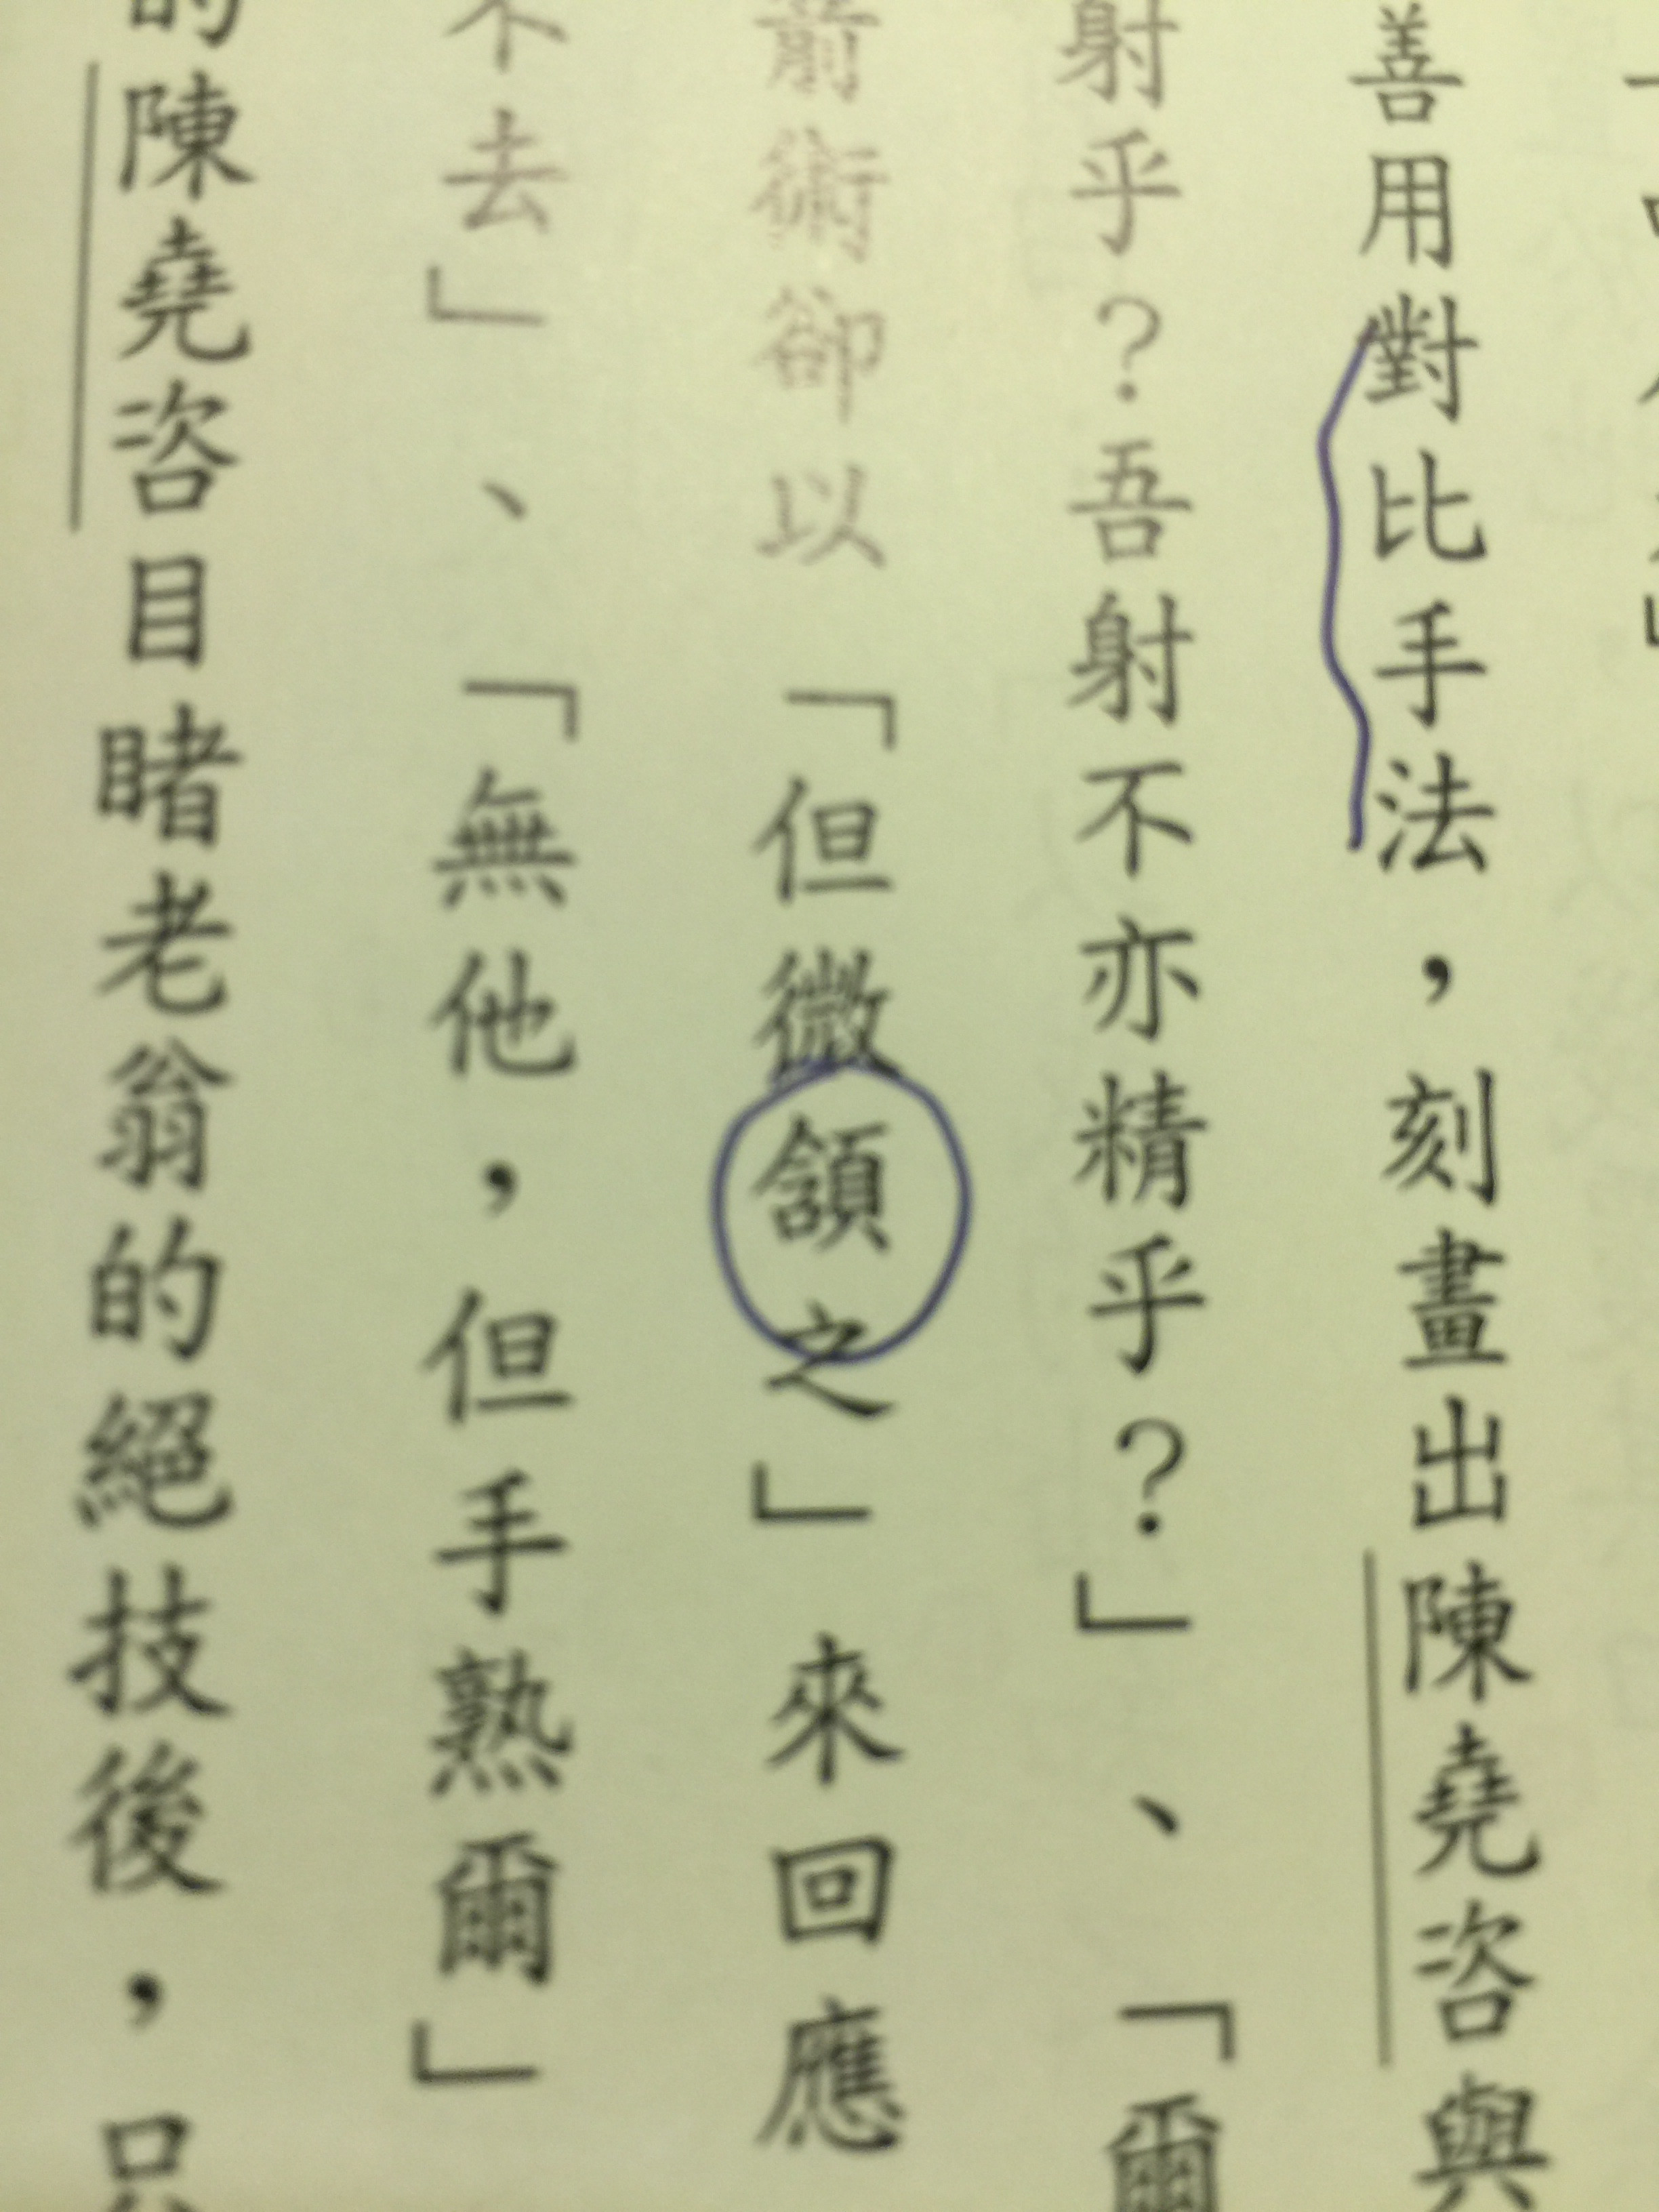 善用對比手法，刻畫出陳堯咨與
射乎？吾射不亦精乎？」、「爾
箭術卻以「但微頷之」來回應
不去」、「無他，但手熟爾」
的陳堯咨目睹老翁的絕技後，只